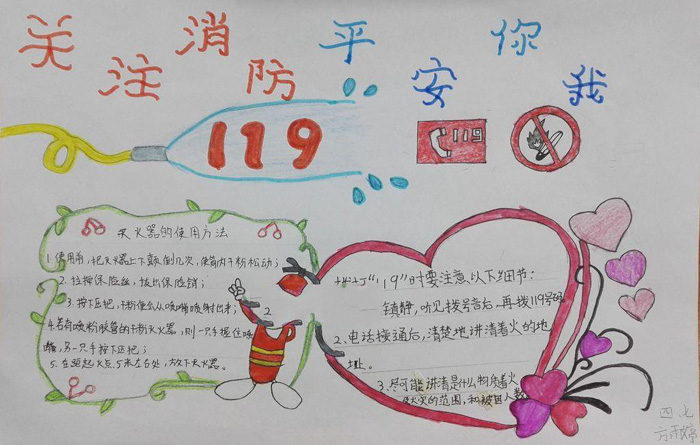 关注消防平安你我
119
119
灭火器的使用方法
1.使用前,把灭火器上下颠倒几次,使筒内干粉松动;
2.拉掉保险丝,拔出保险销;
3.按下压把,干粉便会从喷嘴喷射出来;
4.若有喷粉胶管的干粉灭火器,则一只手握住喷
嘴,另一只手按下压把;
5.在距起火点5米左右处,放下灭火器。
"119"时要注意以下细节:
镇静,听见拨号音后,再拨119号码
2、电话接通后,清楚地讲清着火的地
址。
3、尽可能讲清是什么物质着火
的范围,和被困人数
四